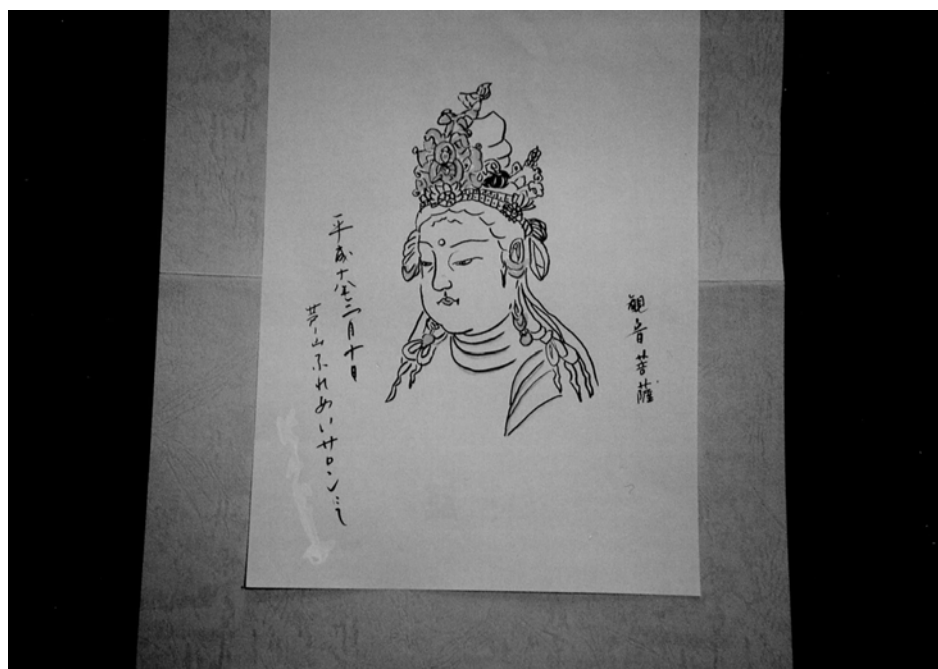 観音菩薩
平成十八年三月十日
ふれあいサロンにて